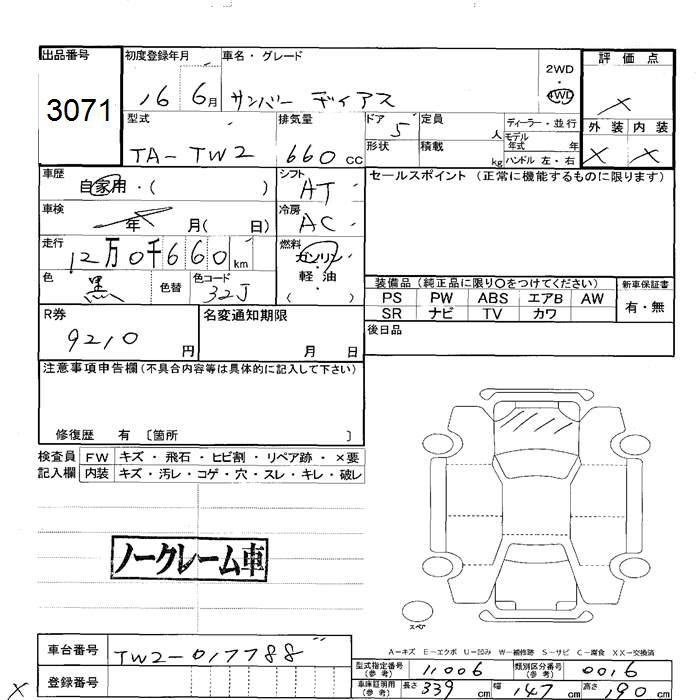 出品番号 初度登録年月 車名・グレード 2WD・4WD 評価点
3071 16 6月 サンバー ディアス ×
型式 排気量 ドア 定員 ディーラー・並行 外装 内装
TA-TW2 660 cc 5 人 モデル年式 年 × ×
形状 積載 kg ハンドル 左・右
車歴 シフト セールスポイント (正常に機能するものに限ります)
自家用・( ) AT
車検 冷房
年 月( 日) AC
走行 燃料
12万0千660km ガソリン・軽油
( )
色 色替 色コード 装備品 (純正品に限り○をつけてください) 新車保証書
黒 32J PS PW ABS エアB AW 有・無
R券 名変通知期限 SR ナビ TV カワ
9210 円 月 日 後日品
注意事項申告欄(不具合内容等は具体的に記入して下さい)
修復歴 有 〔箇所 〕
検査員 FW キズ・飛石・ヒビ割・リペア跡・×要
記入欄 内装 キズ・汚レ・コゲ・穴・スレ・キレ・破レ
ノークレーム車
スペア
A-キズ E-エクボ U-凹み W-補修跡 S-サビ C-腐食 XX-交換済
車台番号 TW2-017788 型式指定番号(参考) 11006 類別区分番号(参考) 0016
登録番号 車庫証明用(参考) 長さ 339 cm 幅 147 cm 高さ 190 cm
×